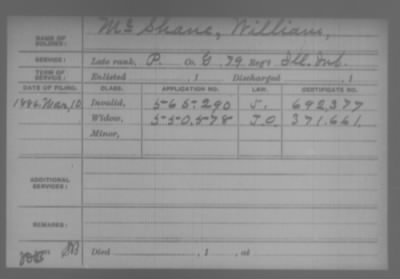 NAME OF SOLDIER: McShane, William,
SERVICE: Late rank, P. Co. G 79 Reg't Ill. Inf.
TERM OF SERVICE: Enlisted , 1 Discharged , 1
DATE OF FILING. CLASS. APPLICATION NO. LAW. CERTIFICATE NO.
1886. Mar, 12 Invalid, 565-290 J. 692,377
Widow, 550,578 J.O. 371.661.
Minor,
ADDITIONAL SERVICES:
REMARKS:
Died , 1 , at